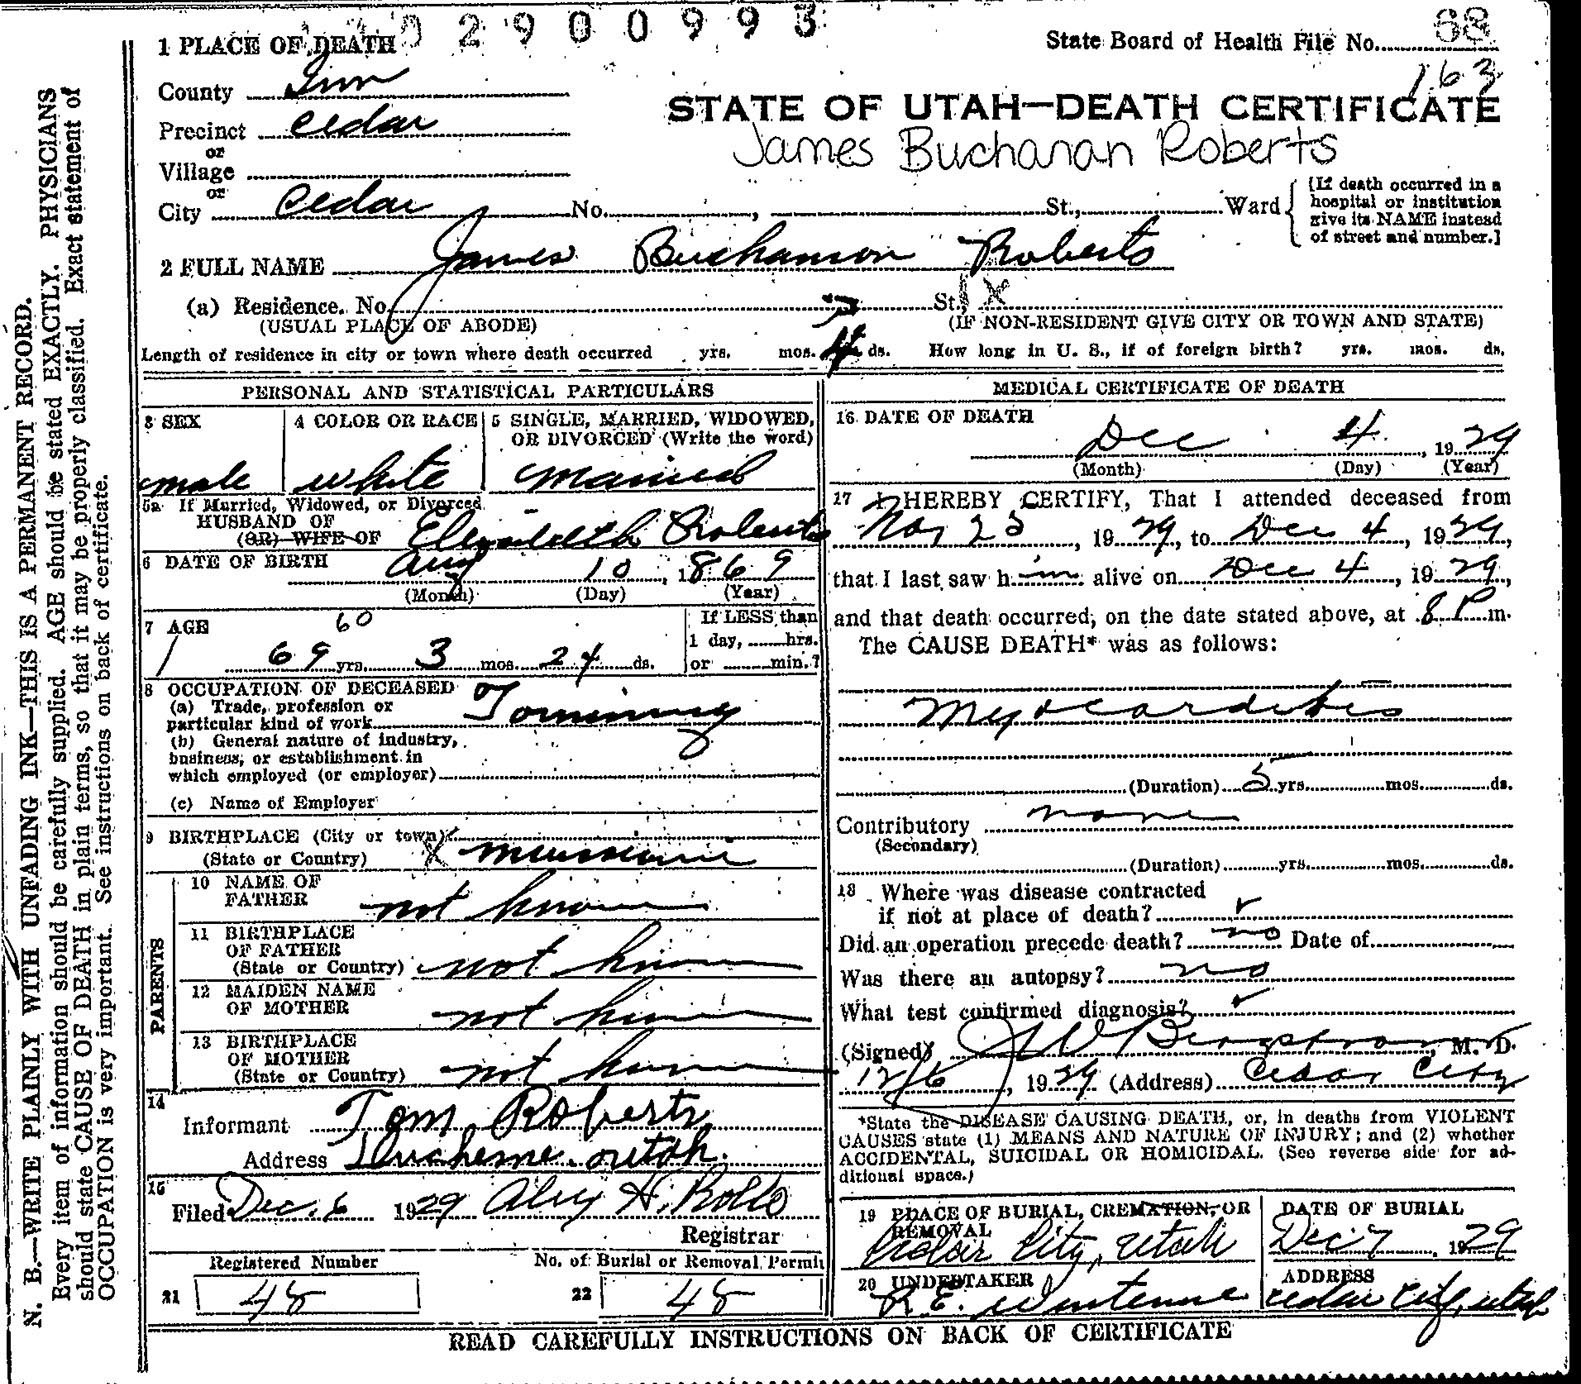 02900993
1 PLACE OF DEATH
State Board of Health File No. 68
163
County Iron
STATE OF UTAH—DEATH CERTIFICATE
Precinct Cedar
James Buchanan Roberts
or
Village
or
City Cedar No. , St., Ward
[If death occurred in a hospital or institution give its NAME instead of street and number.]
2 FULL NAME James Buchanson Roberts
(a) Residence. No. St.,
(USUAL PLACE OF ABODE) (IF NON-RESIDENT GIVE CITY OR TOWN AND STATE)
Length of residence in city or town where death occurred yrs. mos. 4 ds. How long in U. S., if of foreign birth? yrs. mos. ds.
PERSONAL AND STATISTICAL PARTICULARS
3 SEX male
4 COLOR OR RACE white
5 SINGLE, MARRIED, WIDOWED, OR DIVORCED (Write the word) married
5a If Married, Widowed, or Divorced
HUSBAND OF
(OR) WIFE OF Elizabeth Roberts
6 DATE OF BIRTH Aug 10, 1869
(Month) (Day) (Year)
7 AGE 60
69 yrs. 3 mos. 24 ds.
If LESS than
1 day, hrs.
or min.?
8 OCCUPATION OF DECEASED
(a) Trade, profession or
particular kind of work
(b) General nature of industry,
business, or establishment in
which employed (or employer)
(c) Name of Employer
9 BIRTHPLACE (City or town)
(State or Country) X
PARENTS
10 NAME OF
FATHER not known
11 BIRTHPLACE
OF FATHER
(State or Country) not known
12 MAIDEN NAME
OF MOTHER not known
13 BIRTHPLACE
OF MOTHER
(State or Country) not known
14
Informant Tom Roberts
Address Duchesne utah.
15
Filed Dec. 6 1929 H. Rollo
Registrar
Registered Number
21 48
No. of Burial or Removal Permit
22 48
MEDICAL CERTIFICATE OF DEATH
16 DATE OF DEATH
Dec 4, 1929
(Month) (Day) (Year)
17 I HEREBY CERTIFY, That I attended deceased from
Nov 25, 1929, to Dec 4, 1929,
that I last saw him alive on Dec 4, 1929,
and that death occurred, on the date stated above, at 8 P. m.
The CAUSE DEATH* was as follows:
Myocarditis
(Duration) 5 yrs. mos. ds.
Contributory none
(Secondary)
(Duration) yrs. mos. ds.
18 Where was disease contracted
if not at place of death?
Did an operation precede death? no Date of
Was there an autopsy? no
What test confirmed diagnosis?
(Signed) J W Bergstrom, M. D.
12/6, 1929 (Address) Cedar City
*State the DISEASE CAUSING DEATH, or, in deaths from VIOLENT
CAUSES state (1) MEANS AND NATURE OF INJURY; and (2) whether
ACCIDENTAL, SUICIDAL OR HOMICIDAL. (See reverse side for ad-
ditional space.)
19 PLACE OF BURIAL, CREMATION, OR
REMOVAL
Cedar City, Utah
DATE OF BURIAL
Dec 7 1929
20 UNDERTAKER
R. E.
ADDRESS
Cedar City, utah
READ CAREFULLY INSTRUCTIONS ON BACK OF CERTIFICATE
N. B.—WRITE PLAINLY WITH UNFADING INK—THIS IS A PERMANENT RECORD.
Every item of information should be carefully supplied. AGE should be stated EXACTLY. PHYSICIANS
should state CAUSE OF DEATH in plain terms, so that it may be properly classified. Exact statement of
OCCUPATION is very important. See instructions on back of certificate.